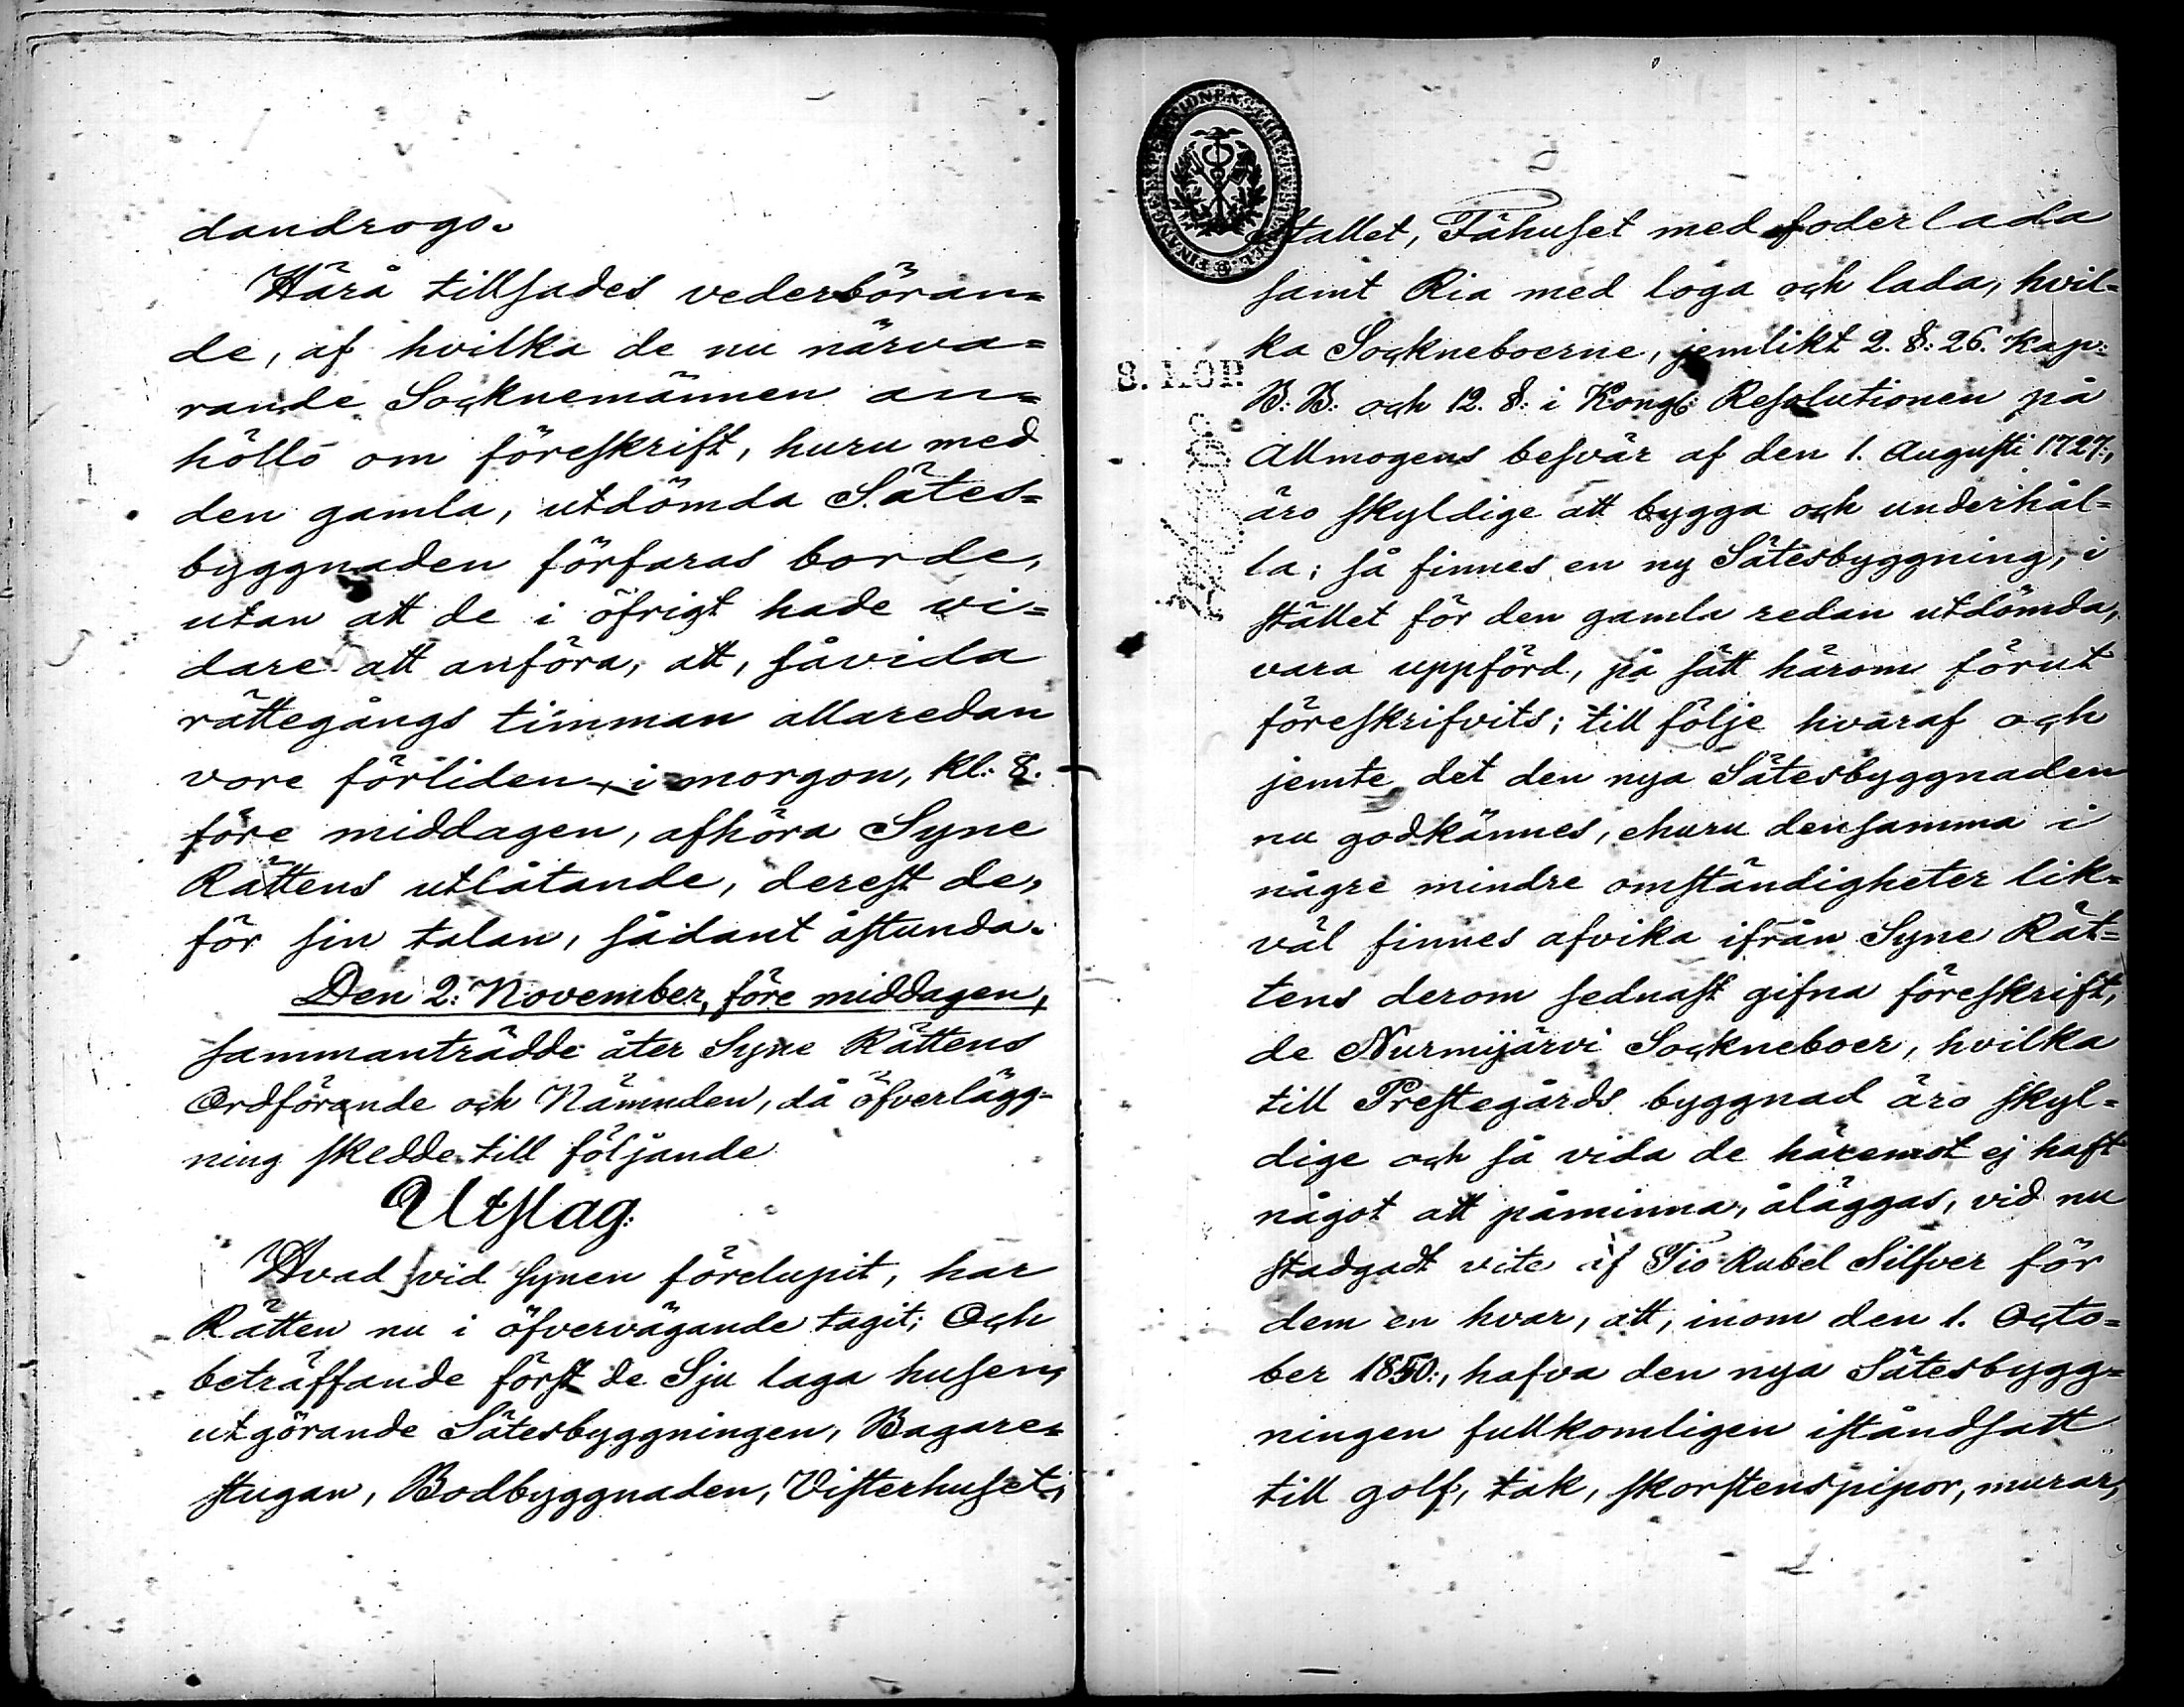 dandrogs.
Härå tillsades vederböran=
de, af hvilka de nu närva=
rande Socknemännen an=
höllo om föreskrift, huru med
den gamla, utdömda Sätes=
byggnaden förfaras borde,
utan att de i öfrigt hade vi=
dare att anföra, att, såvida
rättegångs timman allaredan
vore förliden, i morgon, Kl: 8.
före middagen, afhöra Syne
Rättens utlåtande, derest de,
för sin talan, sådant åstunda.
Den 2: November, före middagen,
sammanträdde åter Syne Rättens
Ordförande och Nämnden, då öfverlägg=
ning skedde till följande
Utslag:
Hvad vid synen förelupit, har
Rätten nu i öfvervägande tagit; Och
beträffande först de Sju laga husen,
utgörande Sätesbyggningen, Bagare=
stugan, Bodbyggnaden, Visterhuset,
Stallet, Fähuset med foderlada
samt Ria med loga och lada, hvil=
8. KOP.
ka Sockneboerne, jemlikt 2. §: 26. Kap:
B: B: och 12. §: i Kongl: Resolutionen på
Allmogens besvär af den 1. Augusti 1727:,
äro skyldige att bygga och underhål=
la; så finnes en ny Sätesbyggning, i
stället för den gamla redan utdömda,
vara uppförd, på sätt härom förut
föreskrifvits; till följe hvaraf och
jemte det den nya Sätesbyggnaden
nu godkännes, ehuru densamma i
någre mindre omständigheter lik=
väl finnes afvika ifrån Syne Rät=
tens derom sednast gifna föreskrift,
de Nurmijärvi Sockneboer, hvilka
till Prestegårds byggnad äro skyl=
dige och så vida de häremot ej haft
något att påminna, åläggas, vid nu
stadgadt vite af Tio Rubel Silfver för
dem en hvar, att, inom den 1. Octo=
ber 1850:, hafva den nya Sätesbygg=
ningen fullkomligen iståndsatt
till golf, tak, skorstenspipor, murar,